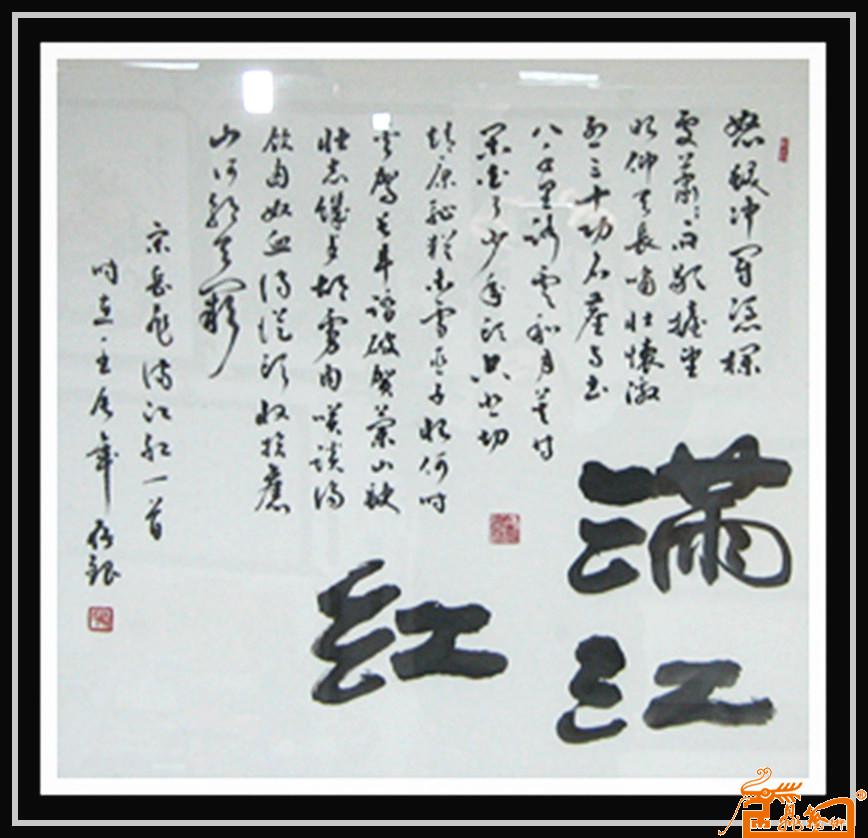 怒髮冲冠凭栏
处萧萧雨歇抬望
眼仰天長啸壮懷激
烈三十功名塵与土
八千里路雲和月莫等
闲白了少年头空悲切
靖康耻犹未雪臣子恨何时
灭驾长车踏破贺蘭山缺
壮志饥餐胡虏肉笑谈渴
饮匈奴血待从头收拾舊
山河朝天阙
滿江
红
宋岳飞满江红一首